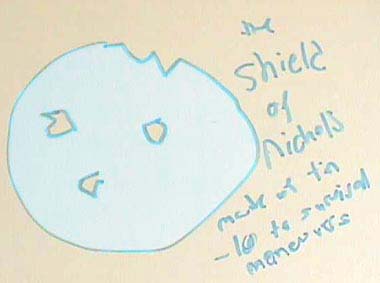 the
Shield
of
Nichols
made of tin
-10 to survival
maneuvers